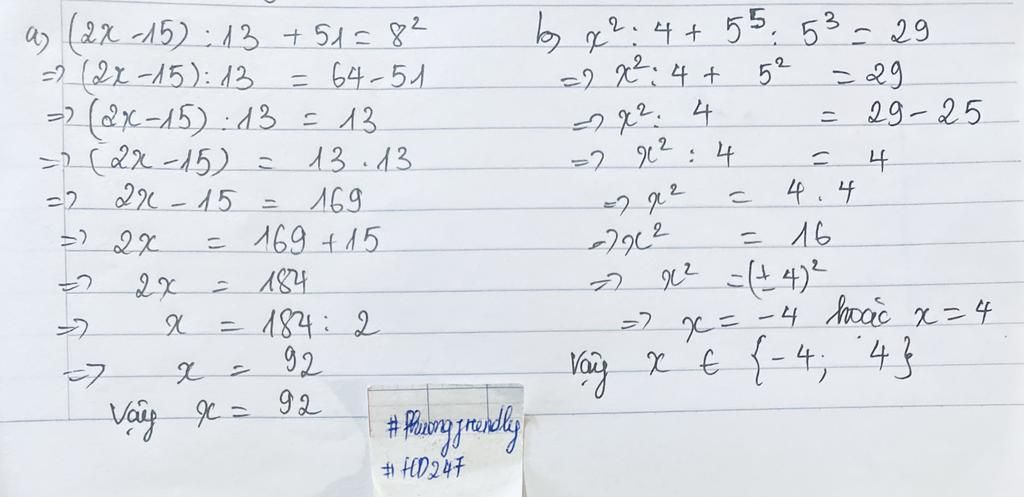 a) (2x - 15) : 13 + 51 = 8²
=> (2x - 15) : 13 = 64 - 51
=> (2x - 15) : 13 = 13
=> (2x - 15) = 13 . 13
=> 2x - 15 = 169
=> 2x = 169 + 15
=> 2x = 184
=> x = 184 : 2
=> x = 92
Vậy x = 92
b) x² : 4 + 5⁵ : 5³ = 29
=> x² : 4 + 5² = 29
=> x² : 4 = 29 - 25
=> x² : 4 = 4
=> x² = 4 . 4
=> x² = 16
=> x² = (± 4)²
=> x = -4 hoặc x = 4
Vậy x ∈ {-4; 4}
#Phuongfriendly
#HD247